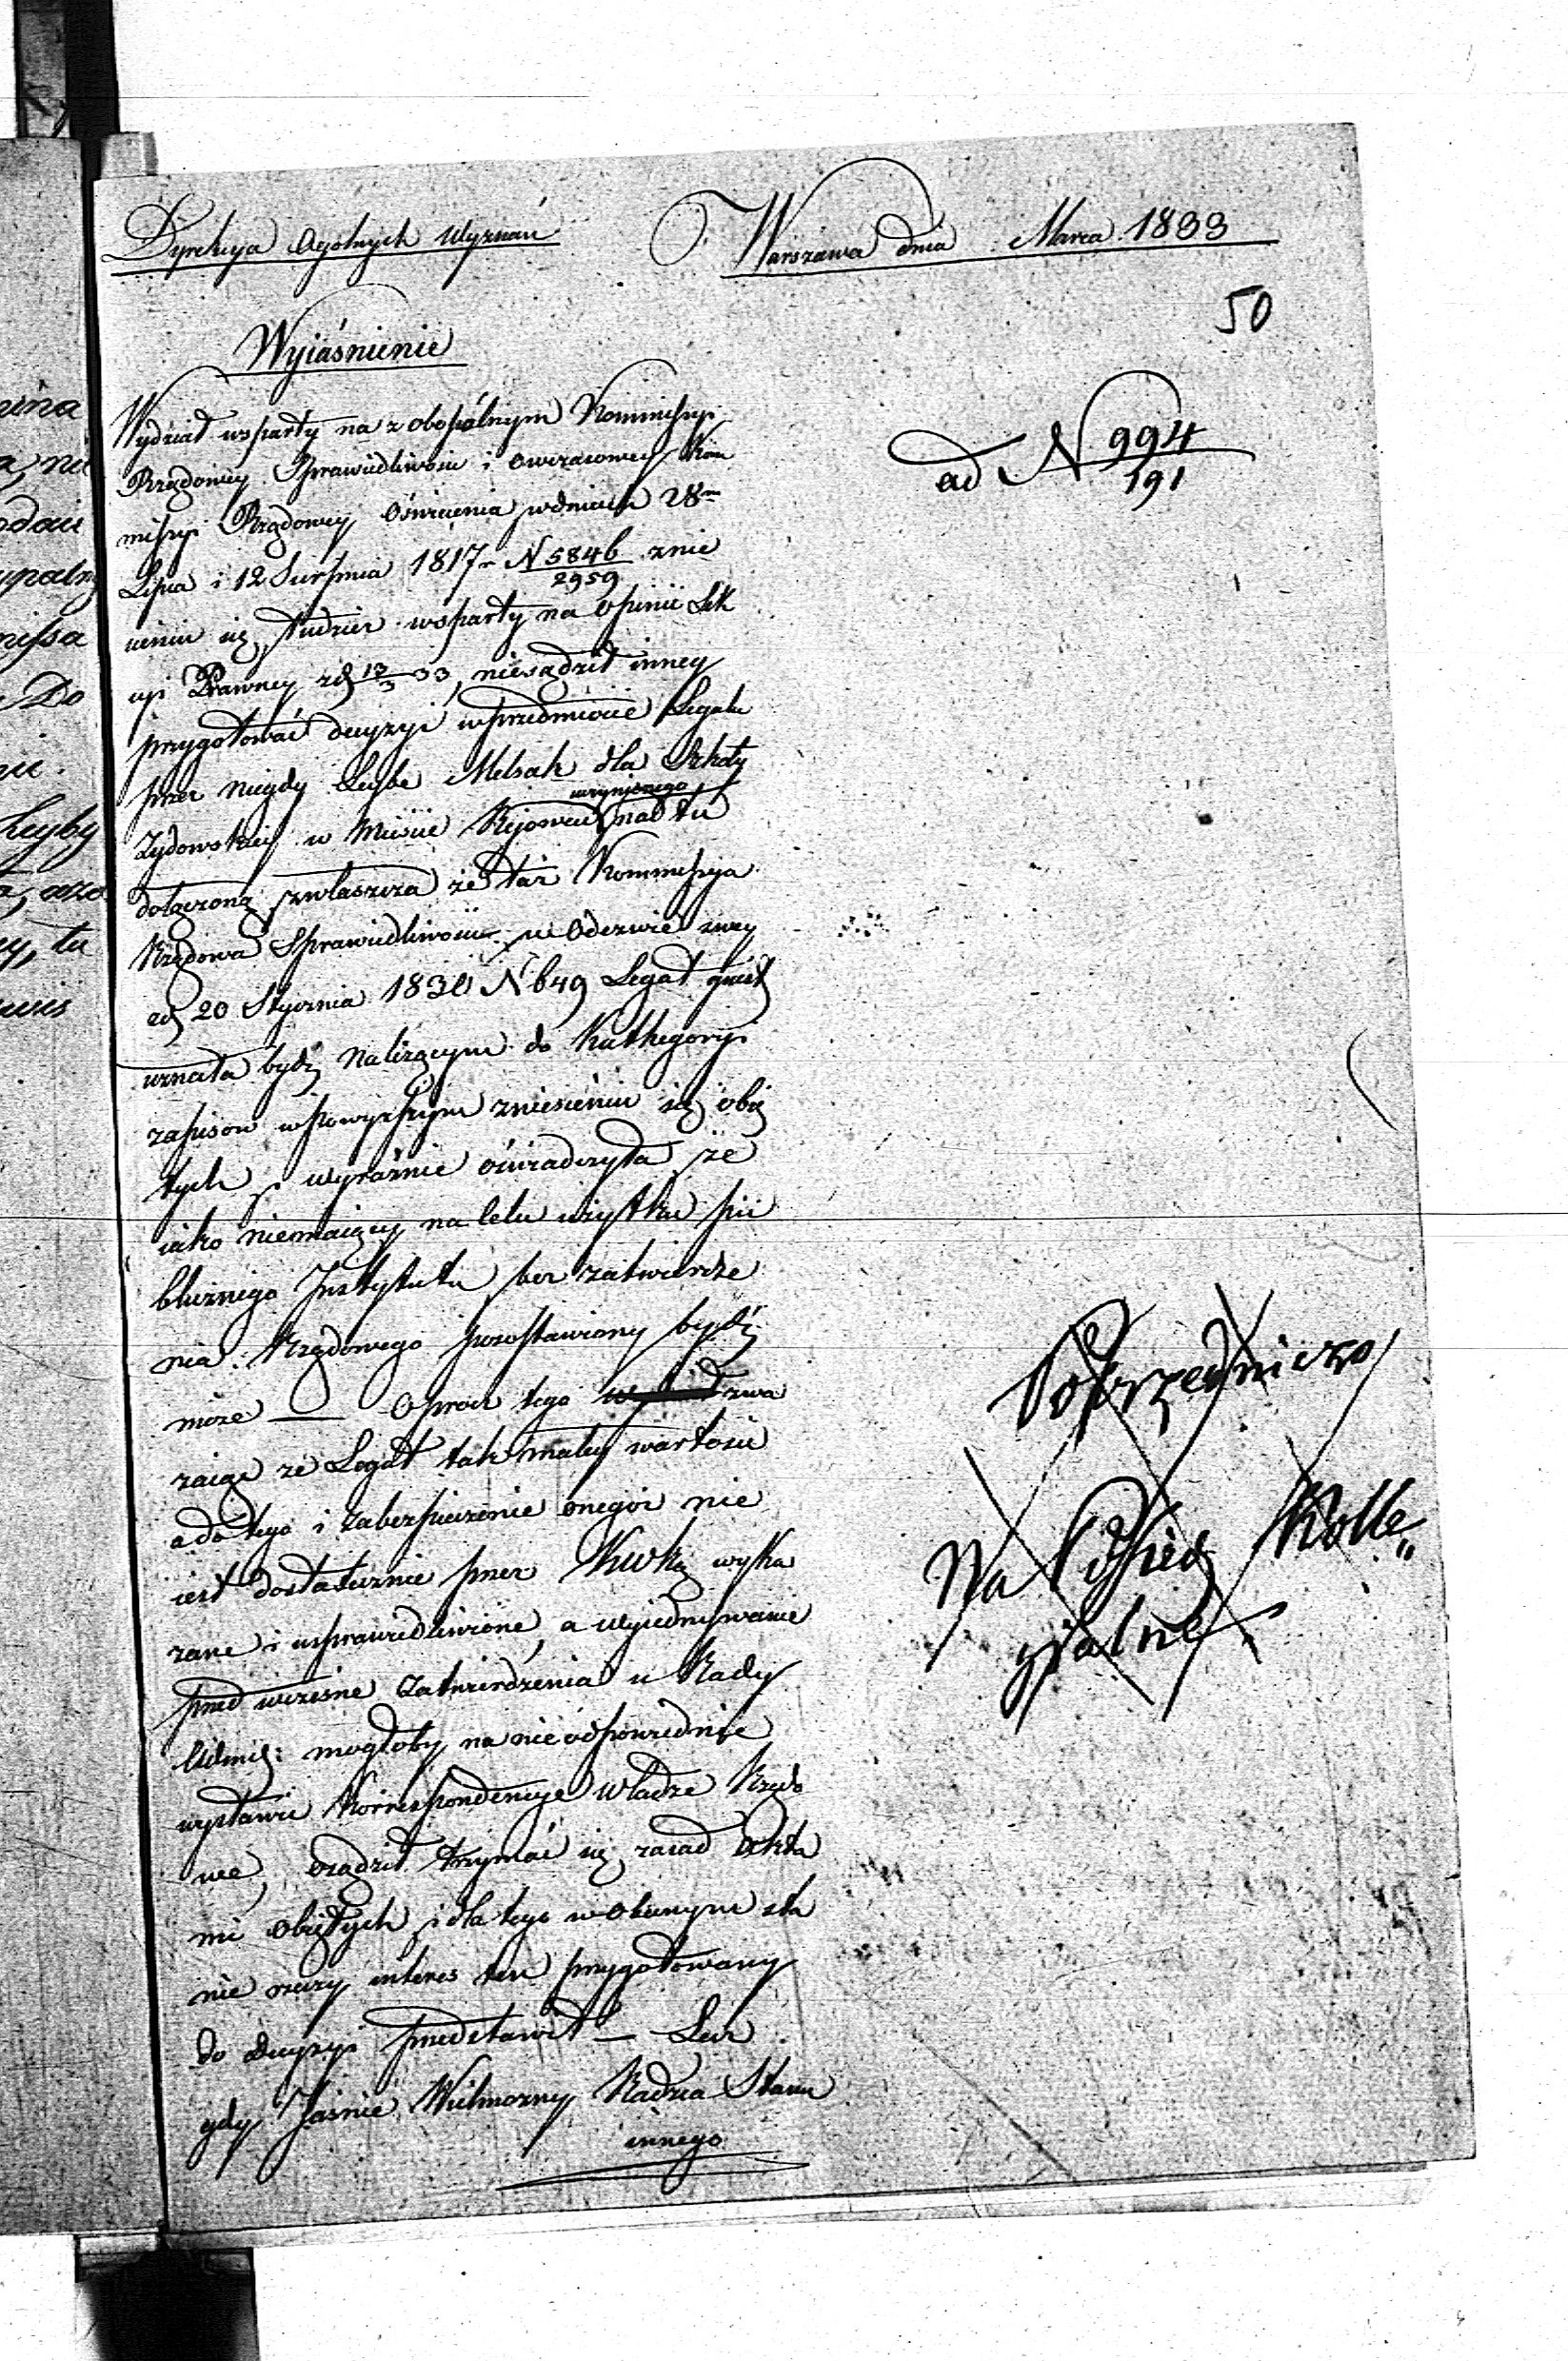 Dyrekcya Ogólnych Wyznań
Warszawa dnia Marca 1833
50
Wyiaśnienie
ad N 994/191
Wydział wsparty na zobopólnym Kommissyi
Rządowey Sprawiedliwości i owczasowey Kom
missyi Rządowey Oświecenia w dniach 28
Lipca i 12 Sierpnia 1817 r N 5846/2959 znie
sieniu się, tudzież wsparty na Opinii Sek
cyi Prawney z d 13/3 33, niesądził inney
przygotować decyzyi w przedmiocie Legatu
przez niegdy Leybe Melsak dla Szkoły
uczynionego
Żydowskiey w Mieście Kijowcu nad tu
dołączoną, zwłaszcza że taż Kommissya
Rządowa Sprawiedliwości w Odezwie swey
z d 20 Stycznia 1830 N 649 Legat
uznała bydź należącym do Kathegoryi
zapisów w powyższym zniesieniu się obię
tych, i wyraźnie oświadczyła, że
iako niemaiący na celu użytku pu
blicznego Instytutu, bez zatwierdze
nia Rządowego pozostawiony bydź
może — Oprócz tego zwa
żaiąc że Legat tak małey wartości
a do tego i zabezpieczenie onegoż nie
iest dostatecznie przez wyka
zane i usprawiedliwione, a wyiednywanie
przedwczesne Zatwierdzenia u Rady
mogłoby na nieodpowiednie
wystawić Korrespondencye Władze Rządo
we, osądził trzymać się zasad Akta
mi obiętych, i dla tego w obecnym sta
nie rzeczy interes ten przygotowany
do Decyzyi przedstawił — Lecz
gdy Jaśnie Wielmożny Radzca Stanu
innego
Poprzedniczo
Na Posiedz Kolle„
gialne